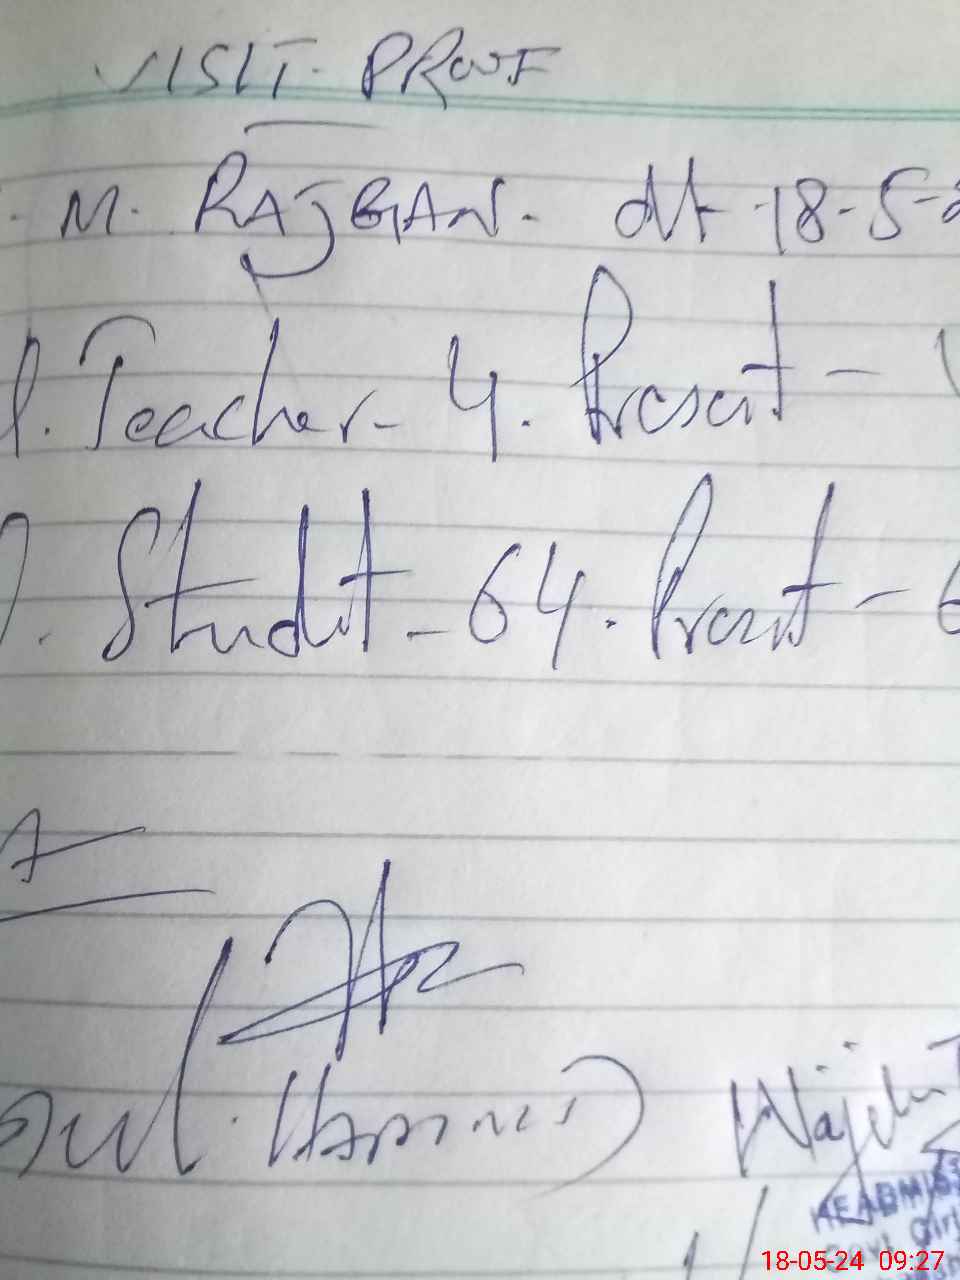 VISIT PROOF
M. RAJGAN. dt-18-5-2
1. Teacher - 4. Present -
2. Studet - 64. Present - 6
HEADMIS
Govt Girl
18-05-24 09:27